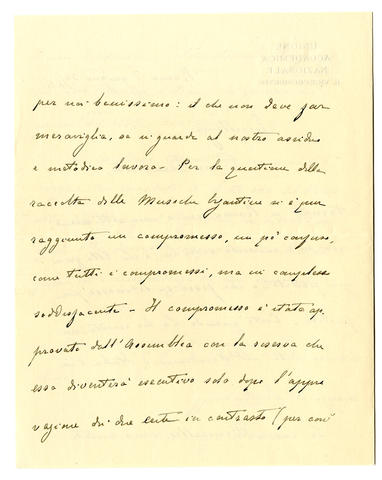 UNIONE
ACCADEMICA
NAZIONALE
per noi benissimo: il che non deve far
meraviglia, se si guarda al nostro assiduo
e metodico lavoro - Per la questione della
raccolta delle Musiche bizantine si è pur
raggiunto un compromesso, un po' confuso,
come tutti i compromessi, ma in complesso
soddisfacente - Il compromesso è stato ap
provato dall'Assemblea con la riserva che
esso diventerà esecutivo solo dopo l'appro
vazione dei due enti in contrasto (per così